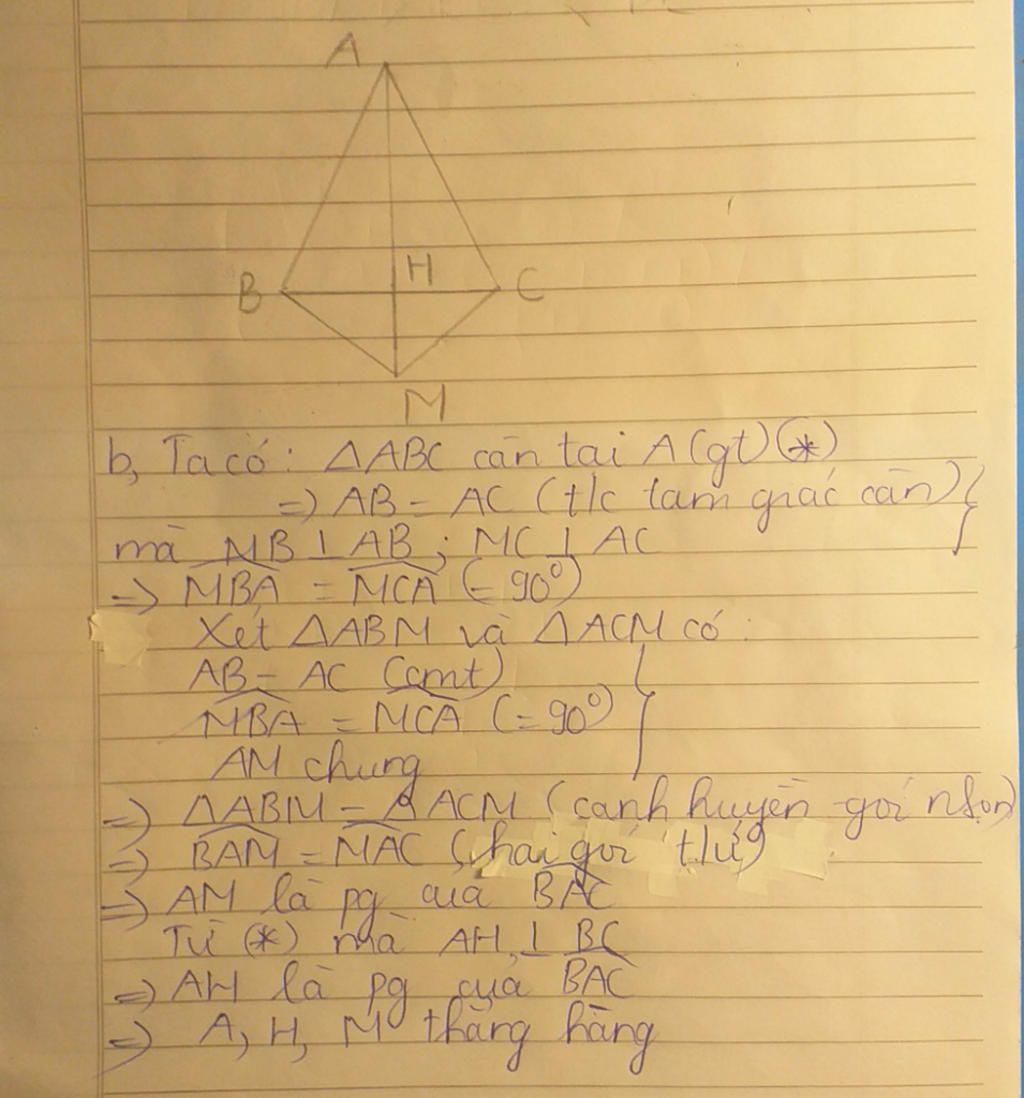 A
B
H
C
M
b, Ta có: ΔABC cân tại A (gt) (*)
=> AB = AC (t/c tam giác cân)
mà MB ⊥ AB ; MC ⊥ AC
=> MBA = MCA (= 90°)
Xét ΔABM và ΔACM có:
AB = AC (cmt)
MBA = MCA (= 90°)
AM chung
=> ΔABM = ΔACM (cạnh huyền - góc nhọn)
=> BAM = MAC (hai góc t/ứ)
=> AM là pg của BAC
Từ (*) mà AH ⊥ BC
=> AH là pg của BAC
=> A, H, M thẳng hàng